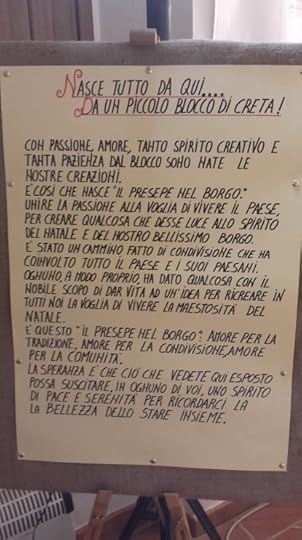 NASCE TUTTO DA QUI....
DA UN PICCOLO BLOCCO DI CRETA!
CON PASSIONE, AMORE, TANTO SPIRITO CREATIVO E
TANTA PAZIENZA DAL BLOCCO SONO NATE LE
NOSTRE CREAZIONI.
È COSI CHE NASCE "IL PRESEPE NEL BORGO."
UNIRE LA PASSIONE ALLA VOGLIA DI VIVERE IL PAESE,
PER CREARE QUALCOSA CHE DESSE LUCE ALLO SPIRITO
DEL NATALE E DEL NOSTRO BELLISSIMO BORGO.
È STATO UN CAMMINO FATTO DI CONDIVISIONE CHE HA
COINVOLTO TUTTO IL PAESE E I SUOI PAESANI.
OGNUNO, A MODO PROPRIO, HA DATO QUALCOSA CON IL
NOBILE SCOPO DI DAR VITA AD UN'IDEA PER RICREARE IN
TUTTI NOI LA VOGLIA DI VIVERE LA MAESTOSITÀ DEL
NATALE.
È QUESTO "IL PRESEPE NEL BORGO": AMORE PER LA
TRADIZIONE, AMORE PER LA CONDIVISIONE, AMORE
PER LA COMUNITÀ.
LA SPERANZA È CHE CIÒ CHE VEDETE QUI ESPOSTO
POSSA SUSCITARE, IN OGNUNO DI VOI, UNO SPIRITO
DI PACE E SERENITÀ PER RICORDARCI LA
LA BELLEZZA DELLO STARE INSIEME.